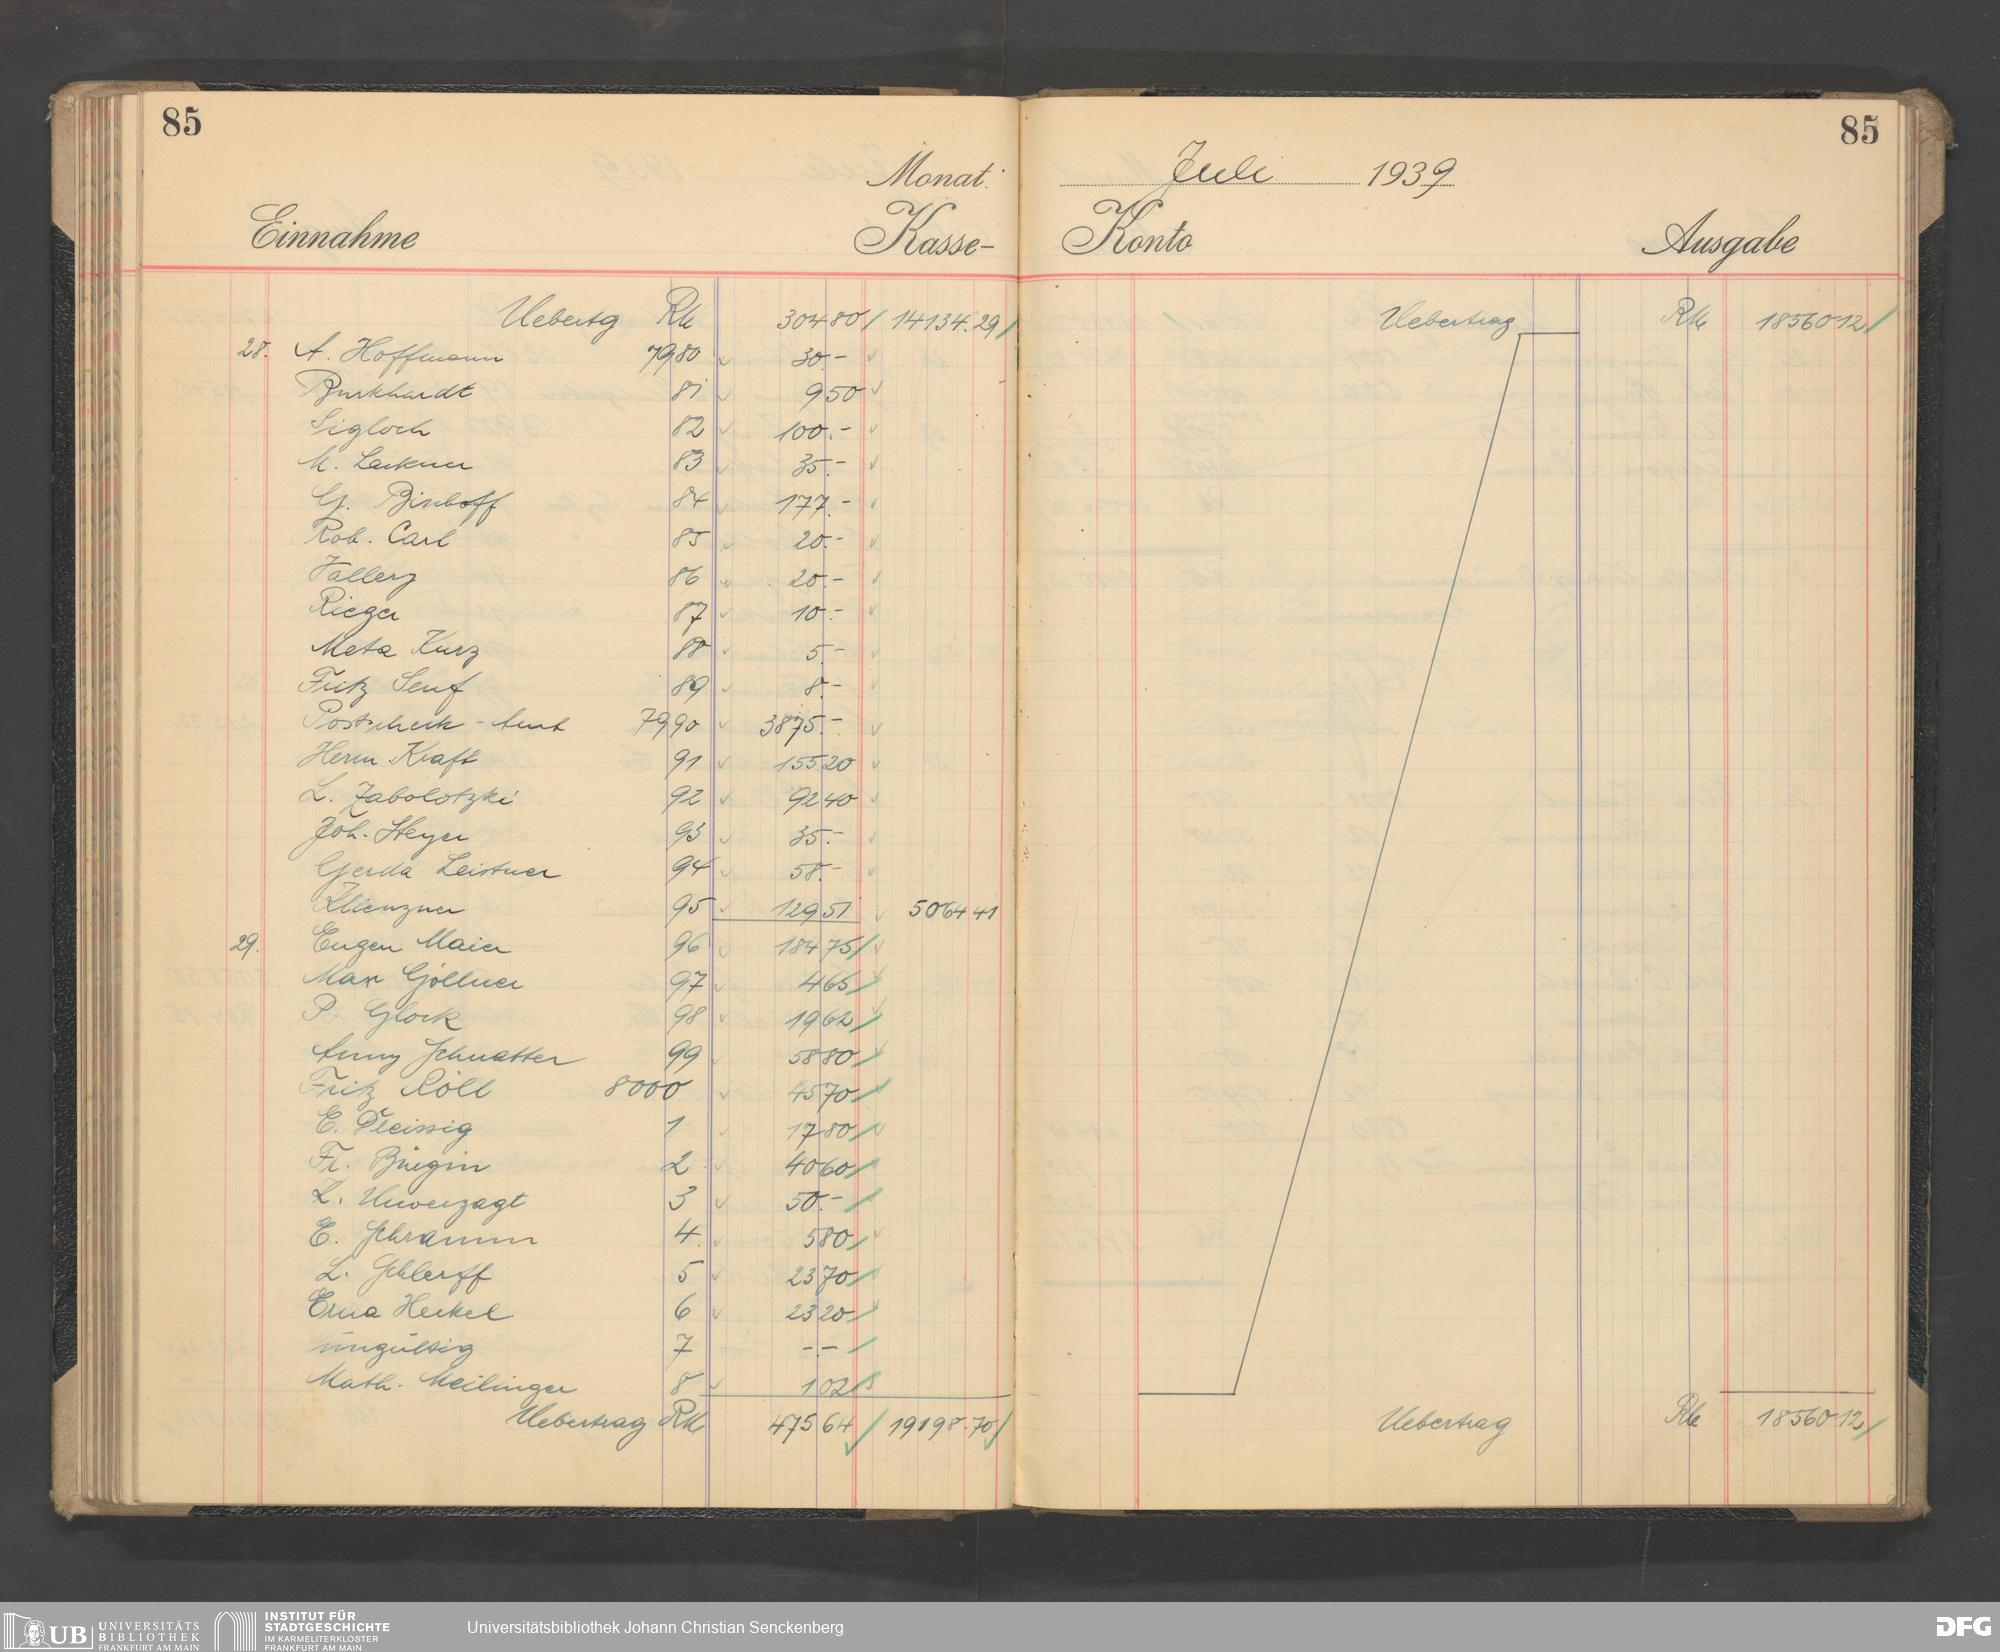 85
85
Monat: Juli 1939
Einnahme Kasse- Konto Ausgabe
Uebertg Rm 304 80 14134.29
28. A. Hoffmann 7980 30.-
Burkhardt 81 9 50
Sigloch 82 100.-
M. Lackner 83 35.-
G. Bischoff 84 177.-
Rob. Carl 85 20.-
86 20.-
Rieger 87 10.-
Meta Kurz 88 5.-
Fritz Senf 89 8.-
Postscheck-Amt 7990 3875.-
Herm. Kraft 91 155 20
L. Zabolotzki 92 92 40
Joh. Heyer 93 35.-
Gerda Leistner 94 58.-
Klienzner 95 129 51 5064 41
29. Eugen Maier 96 184 75
Max Göllner 97 4 65
P. Glock 98 19 62
Anny Schnatter 99 58 80
Fritz Röll 8000 45 70
E. Dreissig 1 17 80
Fr. Bürgin 2 40 60
K. Unverzagt 3 50.-
E. Schramm 4 5 80
L. Schlerff 5 23 70
Erna Heckel 6 23 20
ungültig 7 -.-
Math. Meilinger 8 1 02
Uebertrag Rm 475 64 19198.70
Uebertrag Rm 18560 12
Uebertrag Rm 18560 12
UB UNIVERSITÄTS
BIBLIOTHEK
FRANKFURT AM MAIN
INSTITUT FÜR
STADTGESCHICHTE
IM KARMELITERKLOSTER
FRANKFURT AM MAIN
Universitätsbibliothek Johann Christian Senckenberg
DFG